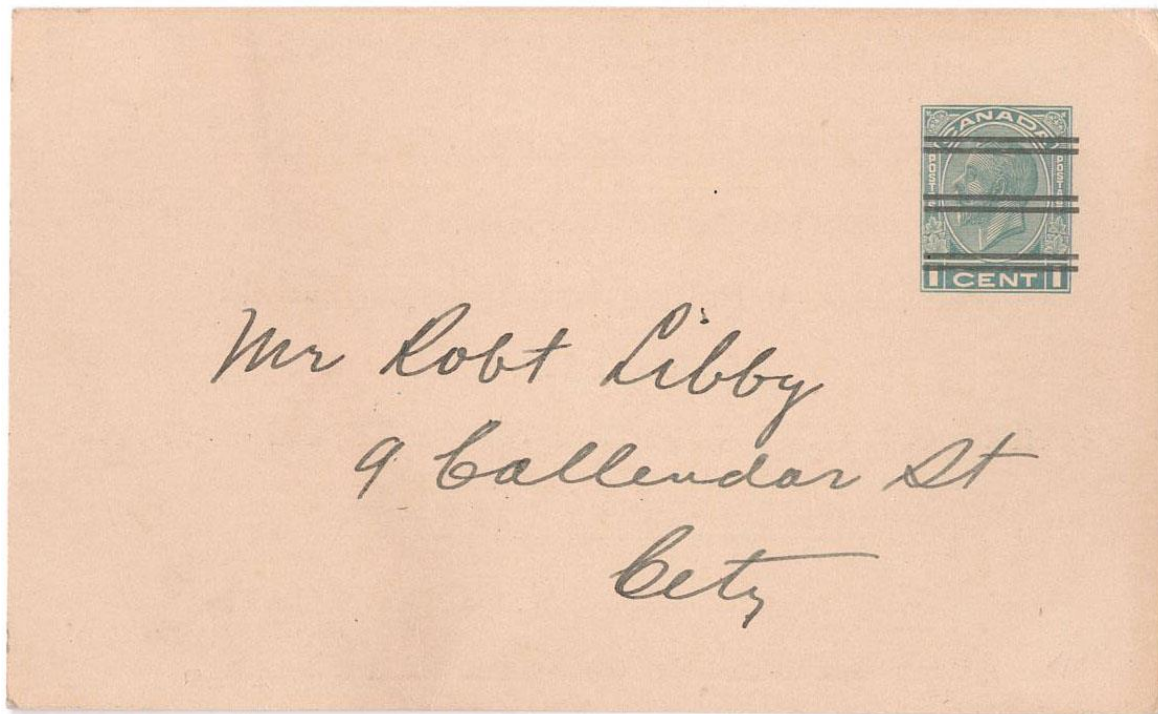 CANADA
POSTAGE POSTAGE
1 CENT 1
Mr Robt Libby
9 Callendar St
City